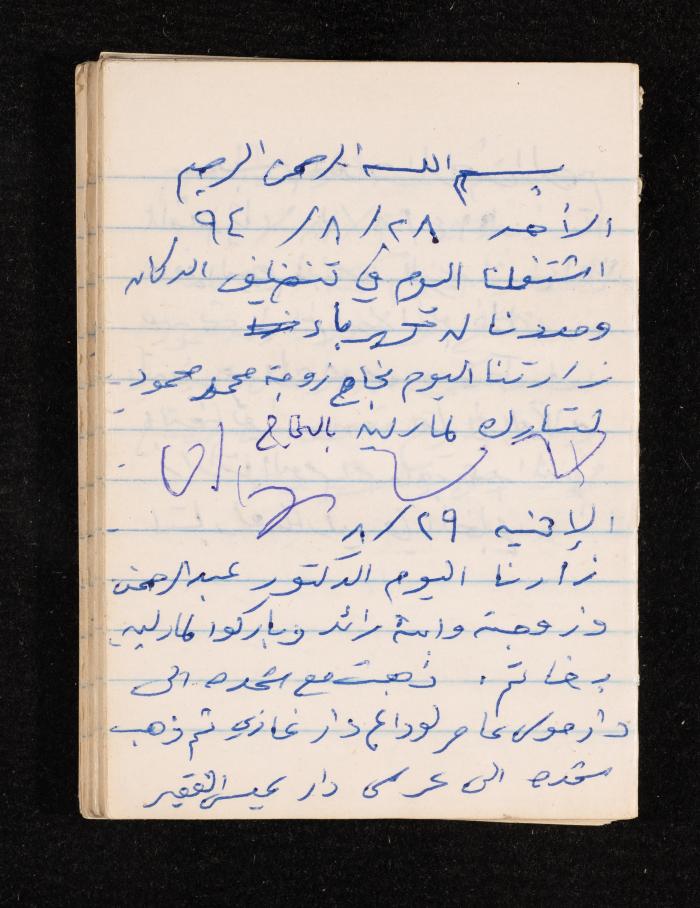 بسم الله الرحمن الرحيم
الأحد ٢٨/ ٨/ ٩٤
اشتغلنا اليوم في تنظيف الدكان
ومددنا له كهرباء
زارتنا اليوم نجاح زوجة محمد محمود
لتبارك لمارلين بالنجاح
الإثنين ٢٩/٨
زارنا اليوم الدكتور عبد الرحمن
وزوجته وابنه رائد وباركوا لمارلين
بخاتم. ذهبت مع شحده الى
دار موسى عامر لوداع دار غازي ثم ذهب
شحده الى عرس دار الفقير